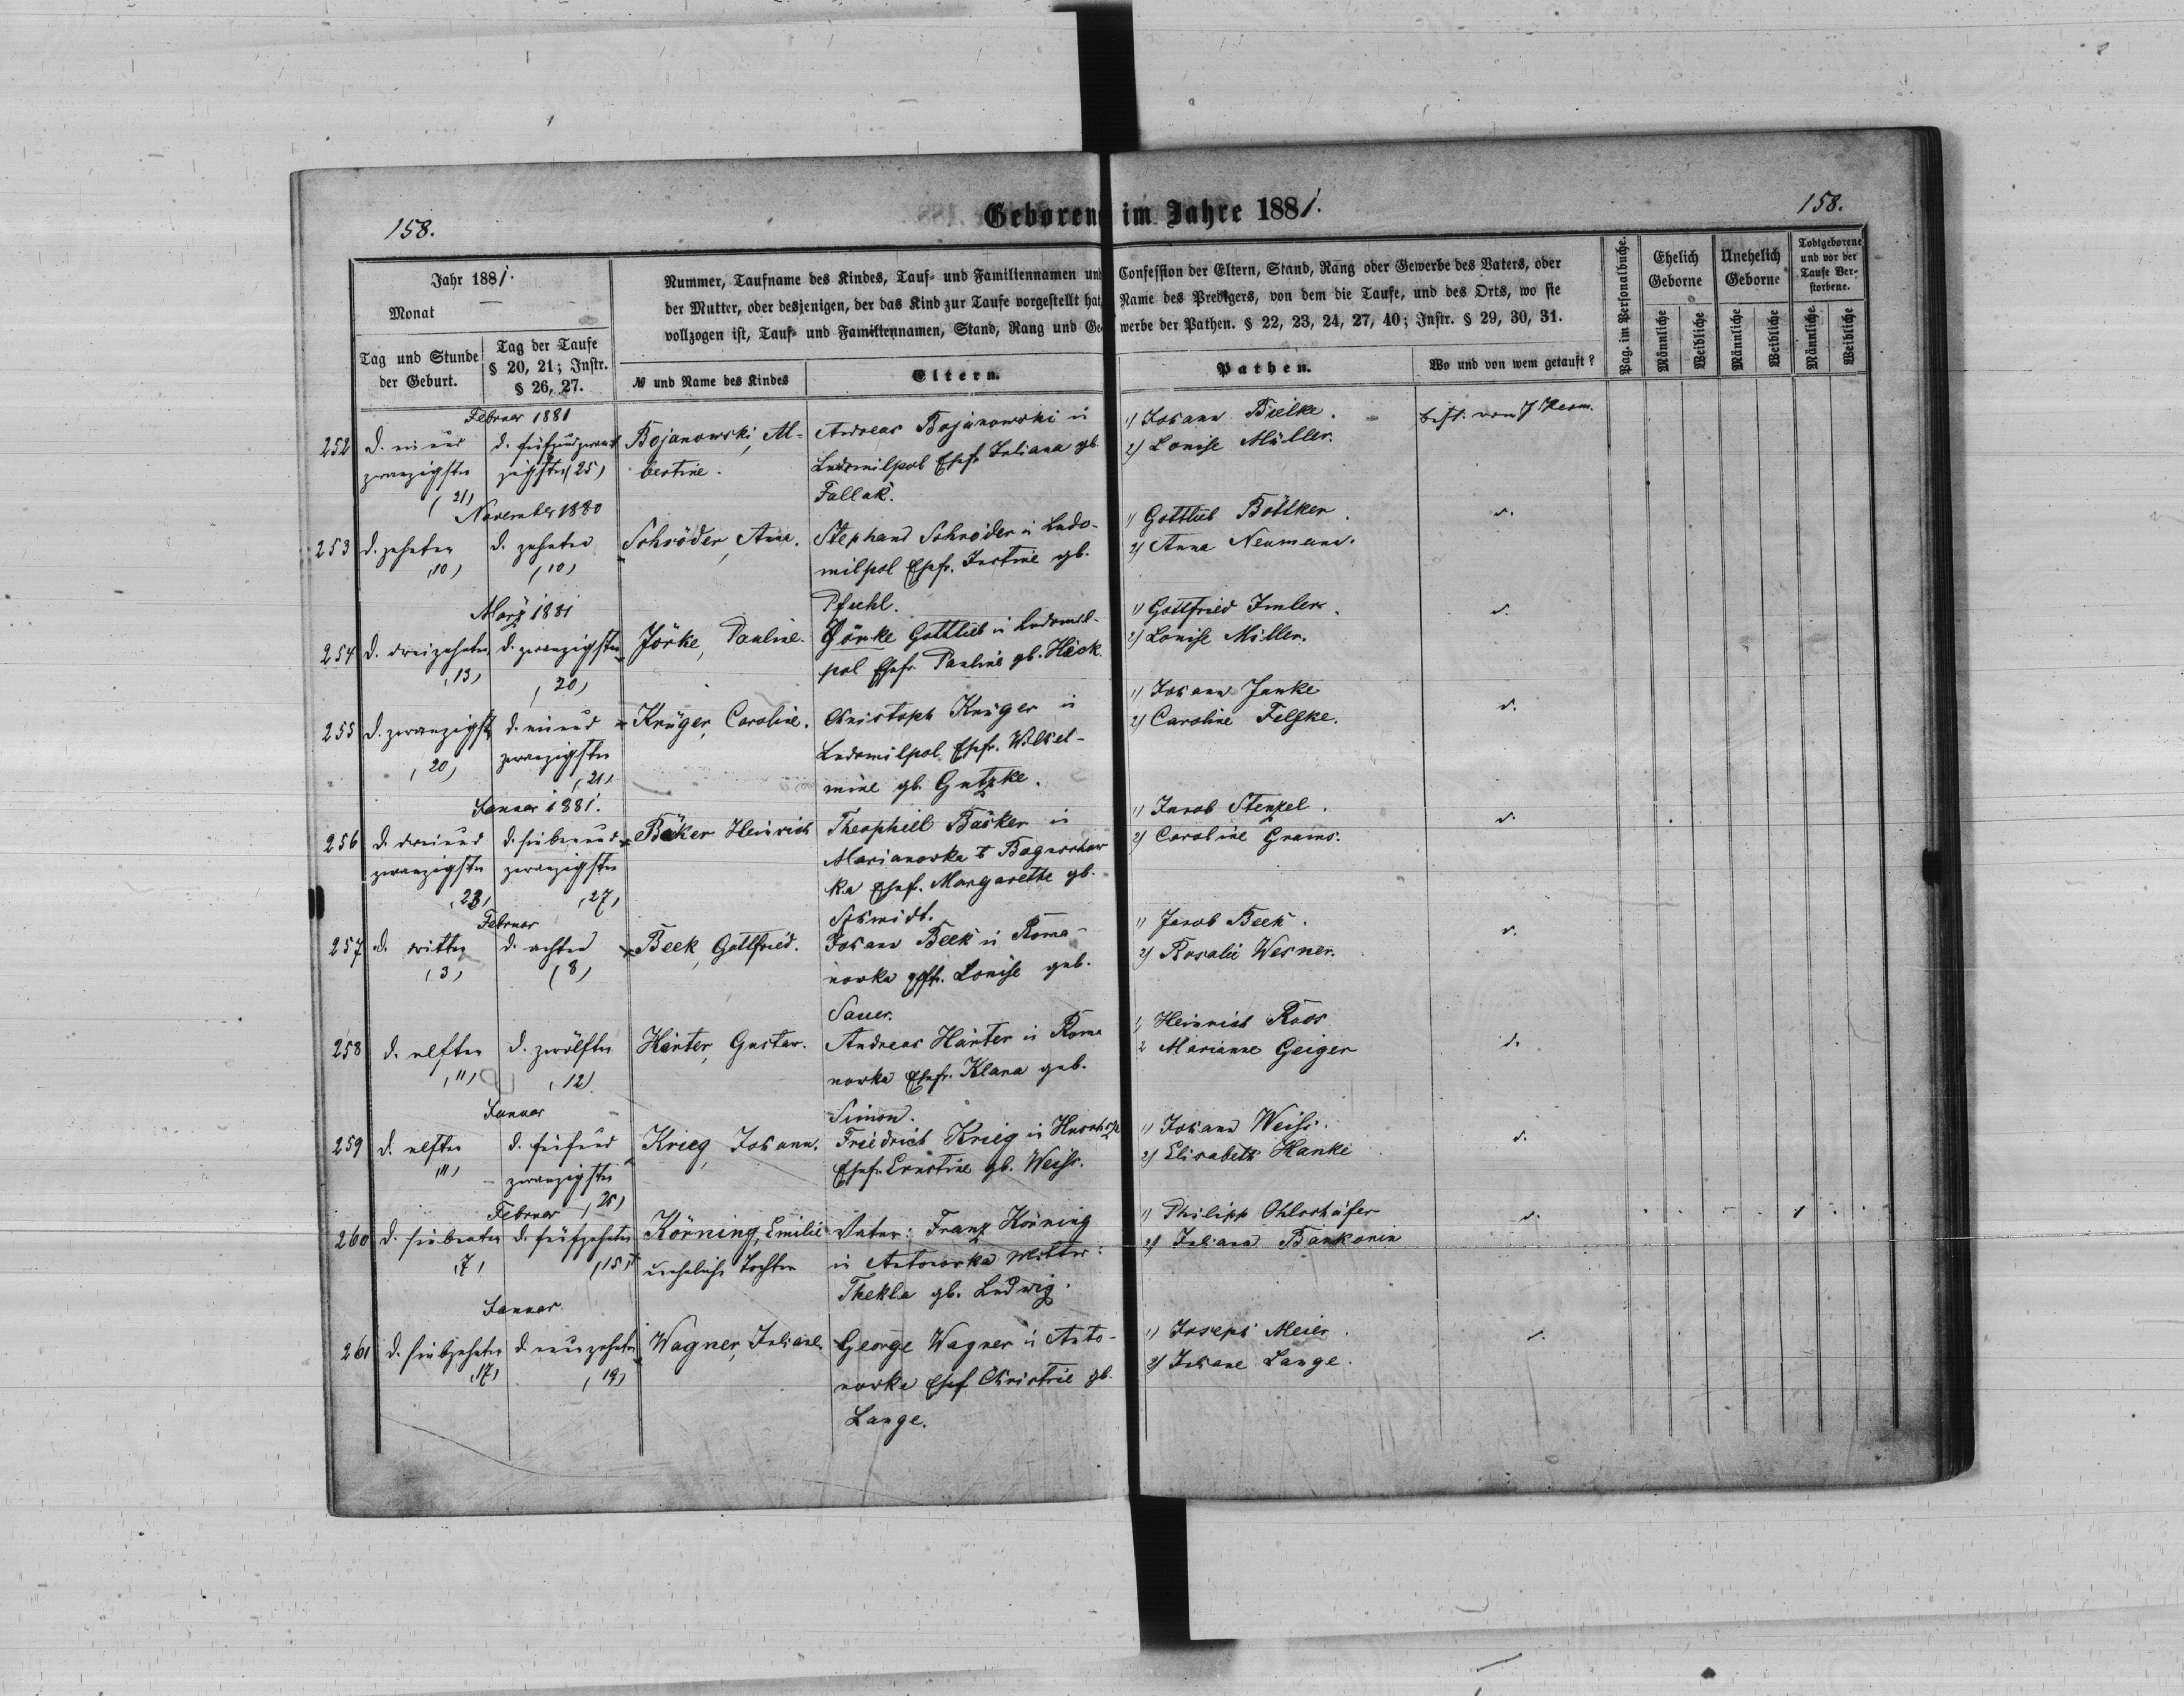 158.
Geborene im Jahre 1881.
158.
Jahr 1881.
Monat
Tag und Stunde der Geburt.
Tag der Taufe § 20, 21; Instr. § 26, 27.
Nummer, Taufname des Kindes, Tauf- und Familiennamen und Confession der Eltern, Stand, Rang oder Gewerbe des Vaters, oder
der Mutter, oder desjenigen, der das Kind zur Taufe vorgestellt hat, Name des Predigers, von dem die Taufe, und des Orts, wo sie
vollzogen ist, Tauf- und Familiennamen, Stand, Rang und Gewerbe der Pathen. § 22, 23, 24, 27, 40; Instr. § 29, 30, 31.
№ und Name des Kindes
Eltern.
Pathen.
Wo und von wem getauft?
Pag. im Personalbuche.
Ehelich Geborne
Unehelich Geborne
Todtgeborene und vor der Taufe Verstorbene.
Männliche
Weibliche
Männliche
Weibliche
Männliche
Weibliche
Februar 1881
252 d. ein und zwanzigsten (21)
d. fünfundzwanzigsten (25)
Bojanowski, Albertine.
Andreas Bojanowski in
Ludomilpol Ehefr. Juliana gb.
Fallak.
1) Johann Bielke.
2) Louise Müller.
best. vom
November 1880
253 d. zehnten (10)
d. zehnten (10)
Schröder, Anna.
Stephand Schröder in Ludo-
milpol Ehefr. Justine gb.
Pfuhl.
1) Gottlieb Böttker.
2) Anna Neumann.
d.
März 1881
254 d. dreizehnten (13)
d. zwanzigsten (20)
Jörke, Pauline.
Jörke Gottlieb in Ludomil-
pol Ehefr. Pauline gb. Heck.
1) Gottfried Imler.
2) Louise Miller.
d.
255 d. zwanzigst. (20)
d. ein und zwanzigsten (21)
Krüger, Caroline.
Christoph Krüger in
Ludomilpol Ehefr. Wilhel-
mine gb. Gutzke.
1) Johann Janke
2) Caroline Felske.
d.
Januar 1881.
256 d. drei und zwanzigsten (23)
d. sieben und zwanzigsten (27)
Bäker Heinrich
Theophill Bäsker in
Marianowka b Boguschow
ka Ehef. Margarethe gb.
Schmidt.
1) Jacob Stenzel.
2) Caroline Grams.
d.
Februar
257 d. dritten (3)
d. achten (8)
Beek, Gottfried.
Johann Beek in Roma-
nowka Ehfr. Louise geb.
Sauer.
1) Jacob Beek.
2) Rosalie Wesner.
d.
258 d. elften (11)
d. zwölften (12)
Härter, Gustav.
Andreas Härter in Roma
nowka Ehefr. Klara geb.
Simon.
1) Heinrich Roos
2 Marianne Geiger
d.
Januar
259 d. elften (11)
d. fünfund zwanzigsten (25)
Krieg, Johann.
Friedrich Krieg in
Ehefr. Ernstine gb. Weiss.
1) Johann Weiss.
2) Elisabeth Hanke
d.
Februar
260 d. siebenten (7)
d. fünfzehnten (15)
Körning, Emilie
uneheliche Tochter
Vater: Franz Körning
in Antonowka Mutter:
Thekla gb. Ludwig.
1) Philipp Ohlschäfer
2) Juliana Bankonin
d.
1
Januar
261 d. siebzehnten (17)
d. neunzehnten (19)
Wagner, Juliane.
George Wagner in Anto-
nowka Ehef. Christine gb.
Lange.
1) Joseph Meier.
2) Juliane Lange.